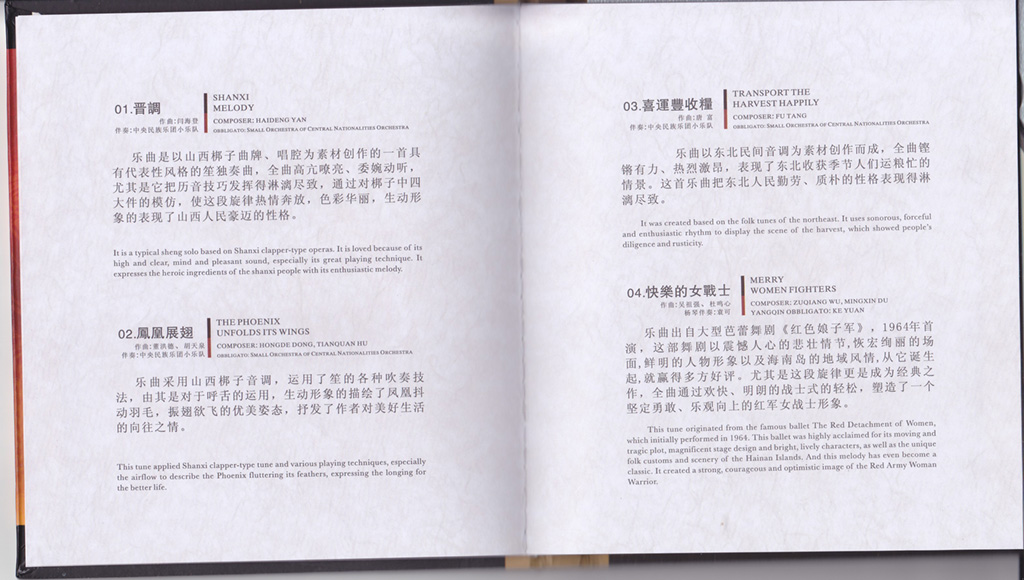 01.晋調
作曲:闫海登
伴奏:中央民族乐团小乐队
SHANXI
MELODY
COMPOSER: HAIDENG YAN
OBBLIGATO: SMALL ORCHESTRA OF CENTRAL NATIONALITIES ORCHESTRA
乐曲是以山西梆子曲牌、唱腔为素材创作的一首具
有代表性风格的笙独奏曲，全曲高亢嘹亮、委婉动听，
尤其是它把历音技巧发挥得淋漓尽致，通过对梆子中四
大件的模仿，使这段旋律热情奔放，色彩华丽，生动形
象的表现了山西人民豪迈的性格。
It is a typical sheng solo based on Shanxi clapper-type operas. It is loved because of its
high and clear, mind and pleasant sound, especially its great playing technique. It
expresses the heroic ingredients of the shanxi people with its enthusiastic melody.
02.鳳凰展翅
作曲:董洪德、胡天泉
伴奏:中央民族乐团小乐队
THE PHOENIX
UNFOLDS ITS WINGS
COMPOSER: HONGDE DONG, TIANQUAN HU
OBBLIGATO: SMALL ORCHESTRA OF CENTRAL NATIONALITIES ORCHESTRA
乐曲采用山西梆子音调，运用了笙的各种吹奏技
法，由其是对于呼舌的运用，生动形象的描绘了凤凰抖
动羽毛，振翅欲飞的优美姿态，抒发了作者对美好生活
的向往之情。
This tune applied Shanxi clapper-type tune and various playing techniques, especially
the airflow to describe the Phoenix fluttering its feathers, expressing the longing for
the better life.
03.喜運豐收糧
作曲:唐 富
伴奏:中央民族乐团小乐队
TRANSPORT THE
HARVEST HAPPILY
COMPOSER: FU TANG
OBBLIGATO: SMALL ORCHESTRA OF CENTRAL NATIONALITIES ORCHESTRA
乐曲以东北民间音调为素材创作而成，全曲铿
锵有力、热烈激昂，表现了东北收获季节人们运粮忙的
情景。这首乐曲把东北人民勤劳、质朴的性格表现得淋
漓尽致。
It was created based on the folk tunes of the northeast. It uses sonorous, forceful
and enthusiastic rhythm to display the scene of the harvest, which showed people's
diligence and rusticity.
04.快樂的女戰士
作曲:吴祖强、杜鸣心
杨琴伴奏:袁可
MERRY
WOMEN FIGHTERS
COMPOSER: ZUQIANG WU, MINGXIN DU
YANGQIN OBBLIGATO: KE YUAN
乐曲出自大型芭蕾舞剧《红色娘子军》，1964年首
演，这部舞剧以震憾人心的悲壮情节,恢宏绚丽的场
面,鲜明的人物形象以及海南岛的地域风情,从它诞生
起,就赢得多方好评。尤其是这段旋律更是成为经典之
作，全曲通过欢快、明朗的战士式的轻松，塑造了一个
坚定勇敢、乐观向上的红军女战士形象。
This tune originated from the famous ballet The Red Detachment of Women,
which initially performed in 1964. This ballet was highly acclaimed for its moving and
tragic plot, magnificent stage design and bright, lively characters, as well as the unique
folk customs and scenery of the Hainan Islands. And this melody has even become a
classic. It created a strong, courageous and optimistic image of the Red Army Woman
Warrior.